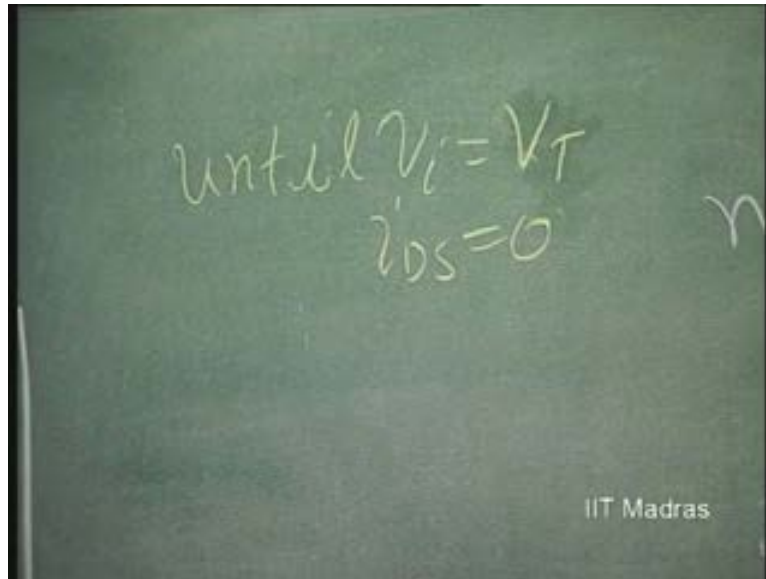 until v_i = V_T
i_DS = 0
n
IIT Madras